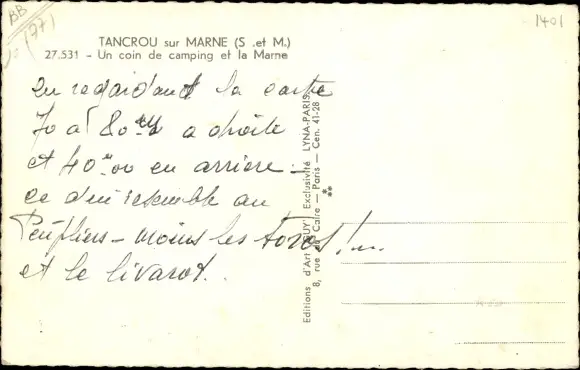 BB
(77)
1401
TANCROU sur MARNE (S .et M.)
27.531 - Un coin de camping et la Marne
en regardant la carte
70 a 80 a droite
et 40 ou en arriere -
ce qui resemble au
Peupliers - moins les
et le livarot.
Editions d'Art "GUY" Exclusivité LYNA-PARIS
8, rue du Caire — Paris — Cen. 41-28